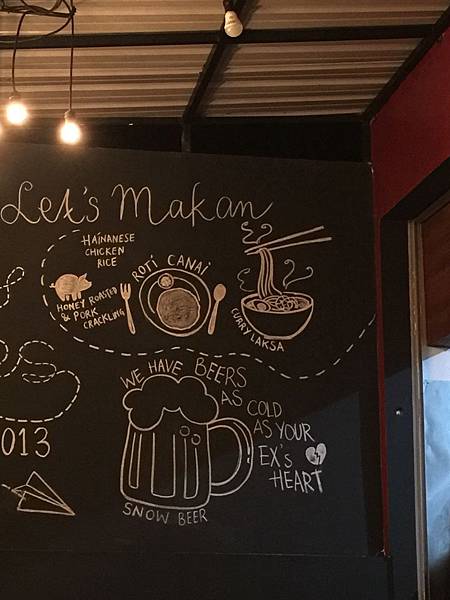 Let's Makan
HAINANESE
CHICKEN
RICE
ROTI CANAI
HONEY ROASTED
& PORK
CRACKLING
CURRY LAKSA
WE HAVE BEERS
AS
COLD
AS YOUR
EX's
HEART
SNOW BEER
013